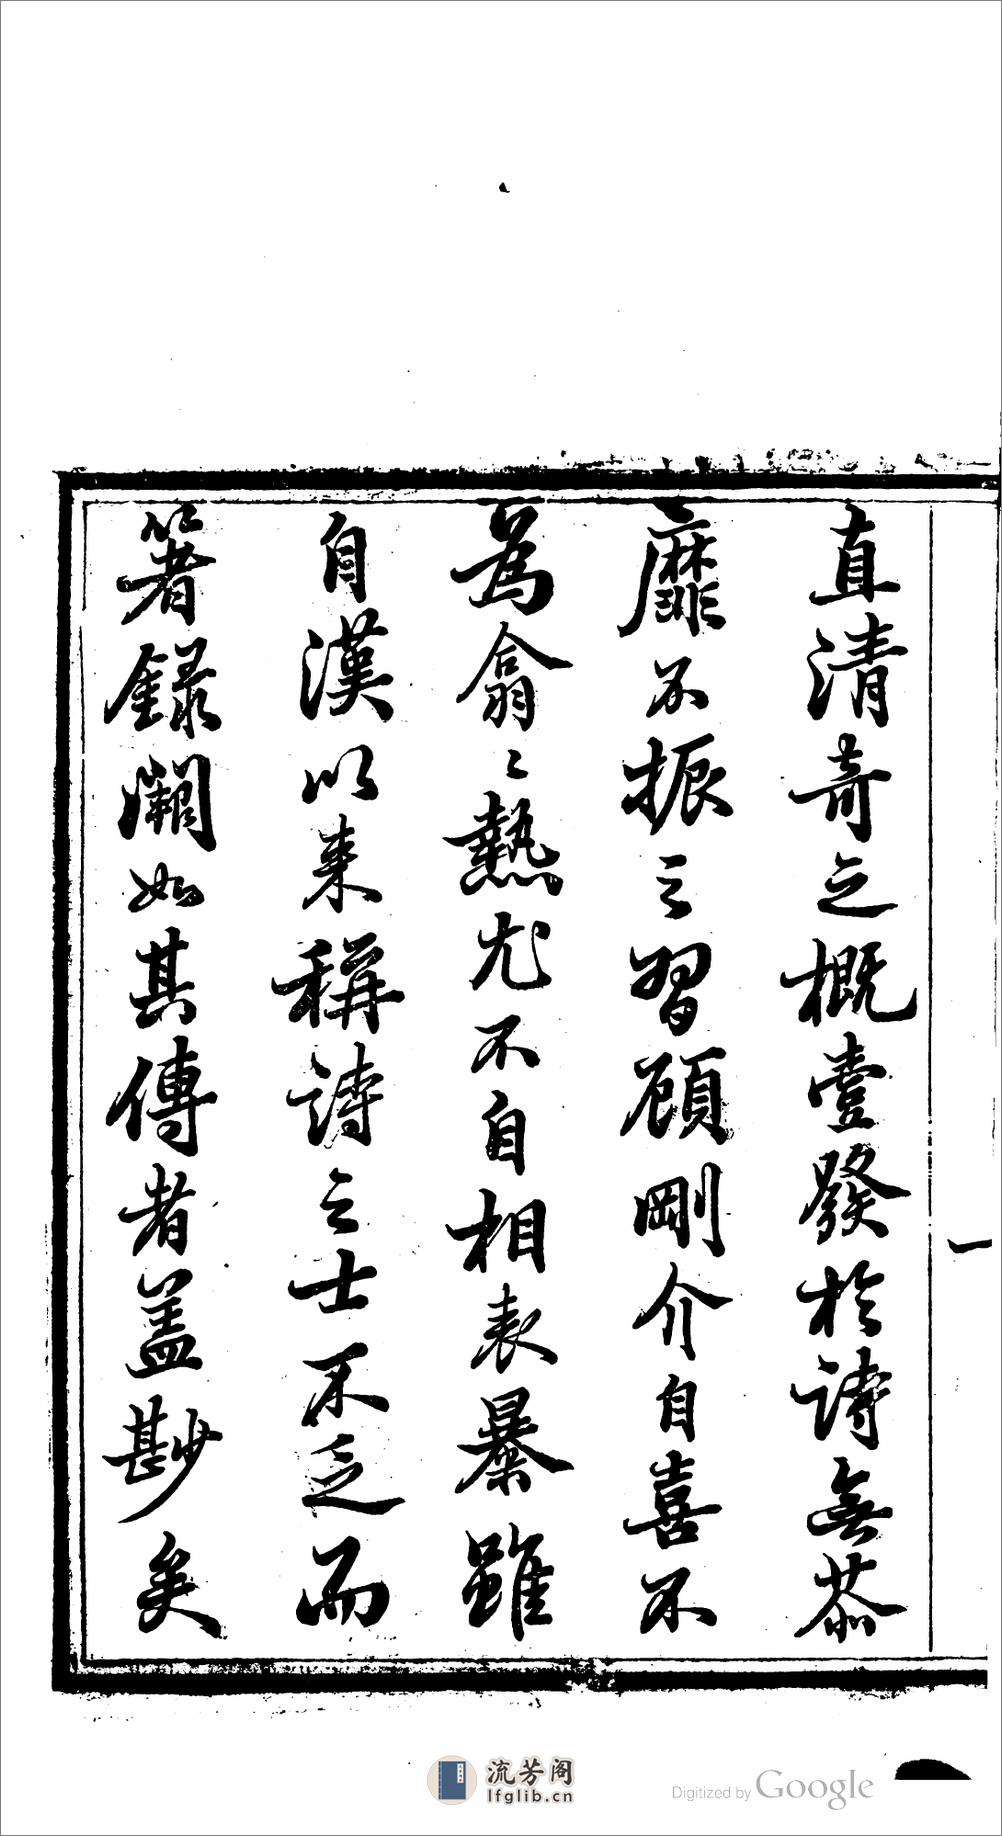 直清奇之概壹發於詩無苶
靡不振之習顧剛介自喜不
為翕〻熱尤不自相表暴雖
自漢以來稱詩之士不乏而
箸錄爛如其傳者盖尠矣
一
流芳阁
lfglib.cn
Digitized by Google